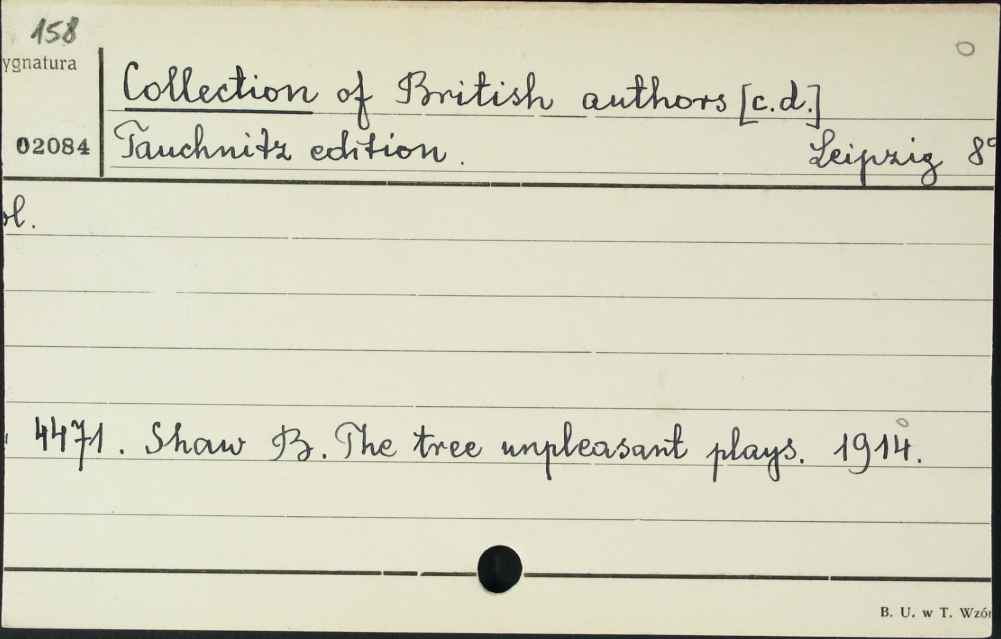 158
ygnatura
Collection of British authors [c.d.]
02084
Tauchnitz edition. Leipzig 8°
ol.
4471. Shaw B. The tree unpleasant plays. 1914.
B. U. w T. Wzór